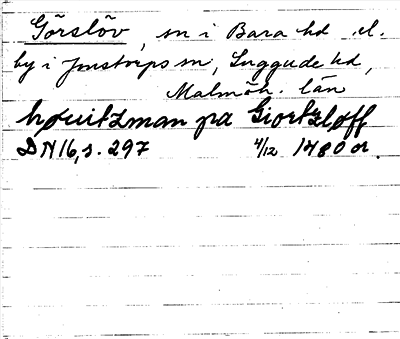 Görslöv, sn i Bara hd el.
by i Jonstorps sn, Luggude hd,
Malmöh. län
houitzman pa Giortzløff
DN16, s. 297 4/12 1480 or.